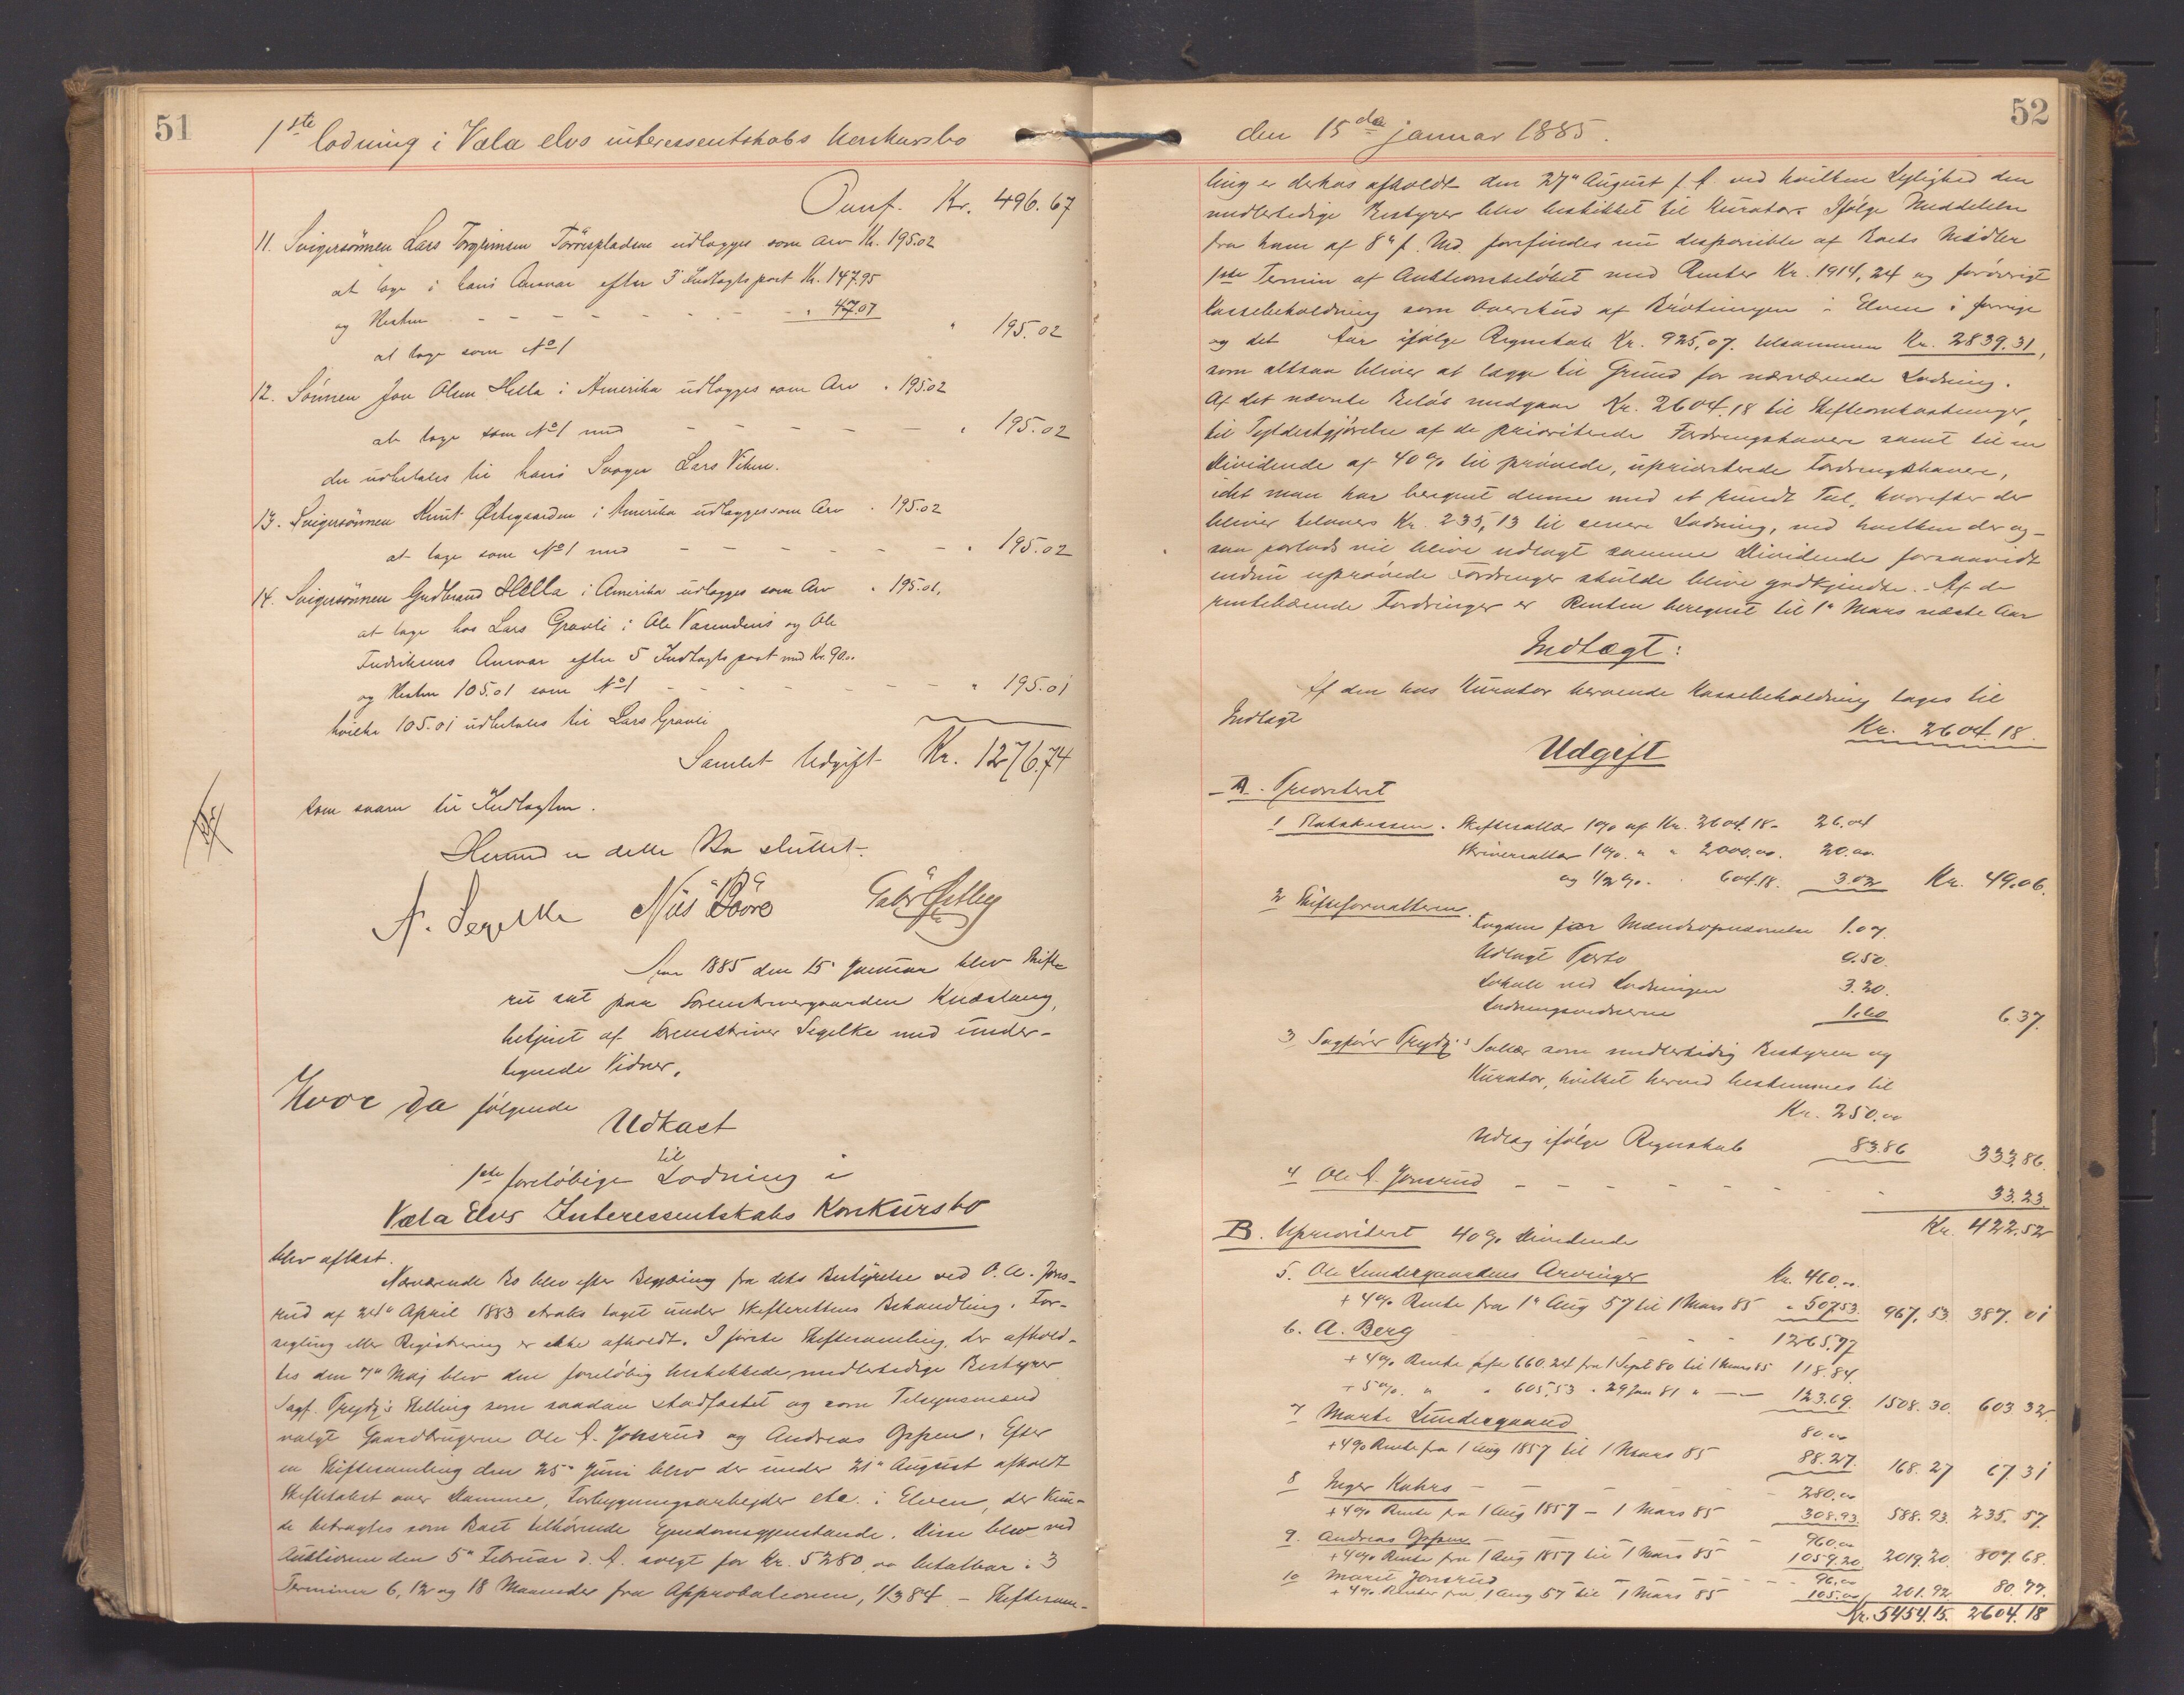 51
1ste lodning i Vala elvs interessentskabs konkursbo
Omf. Kr. 496.67
11. Svigersønnen Lars Torgrimsen Tørrespladsen udlægges som Arv Kr. 195.02
at tage i hans Ansvar efter 3' Indtægtspost Kr. 147.95
og Resten - - - - - - - - " 47.07
" 195.02
at tage som No 1
12. Sønnen Jon Olsen Hella i Amerika udlægges som Arv " 195.02
at tage som No 1 med - - - - - " 195.02
der udbetales til hans Svoger Lars Viken.
13. Svigersønnen Knut Østegaarden i Amerika udlægges som Arv " 195.02
at tage som No 1 med - - - - - - " 195.02
14. Svigersønnen Gudbrand Hella i Amerika udlægges som Arv " 195.01,
at tage hos Lars Gravli i Ole Vasendens og Ole
Fredriksens Ansvar efter 5 Indtægtspost med Kr. 90..
og Resten 105.01 som No 1 - - - - - - - " 195.01
hvilke 105.01 udbetales til Lars Gravli
Samlet Udgift Kr. 1276.74
som svarer til Indtægten.
Hermed er dette Bo sluttet.
A. Segelke Nils Boore
Aar 1885 den 15' Januar blev Skifte-
ret sat paa Sorenskrivergaarden Knæstang,
betjent af Sorenskriver Segelke med under-
tegnede Vidner.
Hvor da følgende
Udkast
til
1ste foreløbige Lodning i
Væla Elvs Interessentskabs Konkursbo
blev oplæst.
Nærværende Bo blev efter Begjæring fra dets Bestyrelse ved O. A. Jons-
rud af 24' April 1883 straks taget under Skifterettens Behandling. For-
segling eller Registrering er ikke afholdt. I første Skiftesamling, der afhold-
tes den 7' Maj blev den foreløbig beskikkede midlertidige Bestyrer
Sagf. Prydz's Stilling som saadan stadfæstet og som Tilsynsmænd
valgt Gaardbrugerne Ole A. Jonsrud og Andreas Oppen. Efter
en Skiftesamling den 25' Juni blev der under 21' August afholdt
Skiftetakst over Damme, Forbygningsarbejder etc. i Elven, der kun-
de betragtes som Boet tilhørende Ejendomsgjenstande. Disse blev ved
Auktionen den 5' Februar d. A. solgt for Kr. 5280,00 betalbar i 3
Terminer 6, 12 og 18 Maaneder fra Approbationen, 1/3 84. - Skiftesam-
52
den 15de januar 1885.
ling er derhos afholdt den 27' August f. A. ved hvilken Lejlighed den
midlertidige Bestyrer blev beskikket til Kurator. Ifølge Meddelelse
fra ham af 8' f. Md. forefindes nu disponible af Boets Midler
1ste Termin af Auktionsbeløbet med Renter Kr. 1914,24 og forøvrigt
Kassebeholdning som Overskud af Brøtningen i Elven i forrige
og det Aar ifølge Regnskab Kr. 925,07. tilsammen Kr. 2839.31,
som altsaa bliver at lægge til Grund for nærværende Lodning.
Af det nævnte Beløb medgaar Kr. 2604.18 til Skifteomkostninger,
til Fyldestgjørelse af de prioriterede Fordringshavere samt til en
Dividende af 40 % til prøvede, uprioriterede Fordringshavere,
idet man har beregnet denne med et rundt Tal, hvorefter der
bliver tilovers Kr. 235,13 til senere Lodning, ved hvilken der og-
saa forlods vil blive udlagt samme Dividende forsaavidt
endnu uprøvede Fordringer skulde blive godkjendte. - Af de
rentebærende Fordringer er Renten beregnet til 1' Mars næste Aar
Indtægt:
Af den hos Kurator beroende Kassebeholdning tages til
Indtægt
Kr. 2604.18.
Udgift
A. Prioritert
1 Statskassen. Skifteafter 1 % af Kr. 2604.18 - 26.04
Skriversalær 1 %. " " 2000,00. 20.00.
og 1/2 %. " 604.18. 3.02 Kr. 49.06.
2 Skifteforvalteren.
Fogden for Mændsopnævnelse 1.07.
Udlagt Porto 0.50.
Lokale ved Lodningen 3.20.
Lodningsvidnerne 1.60 6.37.
3, Sagfører Prydz's Salær som midlertidig Bestyrer og
Kurator, hvilket herved bestemmes til
Kr. 250.00
Udlæg ifølge Regnskab 83.86 333.86.
4 Ole A. Jonsrud - - - - - - - 33.23.
Kr. 422.52
B. Uprioritert 40 % Dividende
5. Ole Lundesgaardens Arvinger Kr. 460.00
+ 4 % Rente fra 1' Aug 57 til 1 Mars 85 " 507.53 967,53 387.01
6. A. Berg - - - - 1265.77
+ 4 % Rente af 660.24 fra 1 Sept 80 til 1 Mars 85 118.84.
+ 5 %. " " 605,53 " 29 Jan 81 " — 123.69. 1508.30. 603.32.
7 Marte Lundesgaard 80.00
+ 4 % Rente fra 1 Aug 1857 til 1 Mars 85 88.27. 168.27 67.31
8 Inger Kuhrs - - - - - 280.00
+ 4 % Rente fra 1 Aug 1857 - 1 Mars 85 308.93. 588.93. 235.57.
9. Andreas Oppen - - - - - 960.00
+ 4 % Rente fra 1 Aug 1857 til 1 Mars 85 1059.20 2019.20. 807.68.
10 Marie Jonsrud - - - - 96.00
+ 4 % Renter fra 1 Aug 57 til 1 Mars 85 105.00 201.92 80.77.
Kr. 5454.15. 2604.18